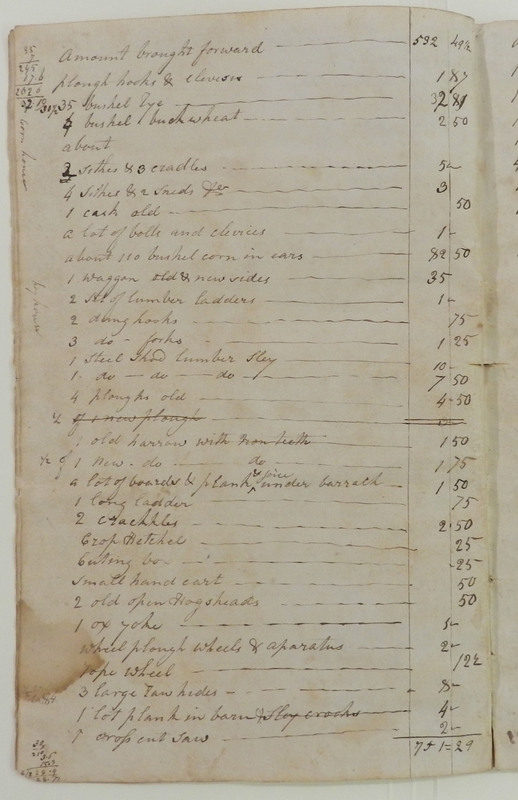 Amount brought forward 532 49½
plough hooks & clevises 1 87
35 bushel rye 32 81
4 bushel buckwheat 2 50
about
2 sithes & 3 cradles 5-
4 sithes & 2 sneds 3
1 cask old 50
a lot of bolts and clevices 1-
about 110 bushel corn in ears 82 50
1 waggon old & new sides 35
2 set of lumber ladders 1-
2 dung hooks 75
3 do - forks 1 25
1 Steel Shod lumber Sley 10-
1- do - do - do 7 50
4 ploughs old 4-50
½ of 1 new plough
1 old harrow with Iron teeth 1 50
½ of 1 New - do do 1 75
a lot of boards & plank under barrack 1 50
1 long ladder 75
2 2 50
Crop Hetchel 25
Cuting box 25
Small hand cart 50
2 old open Hogsheads 50
1 ox yoke 5-
wheel plough wheels & aparatus 2-
rope wheel 12½
3 large raw hides 8-
1 lot plank in barn & Sley 4-
1 cross cut saw 2-
751-29
corn house